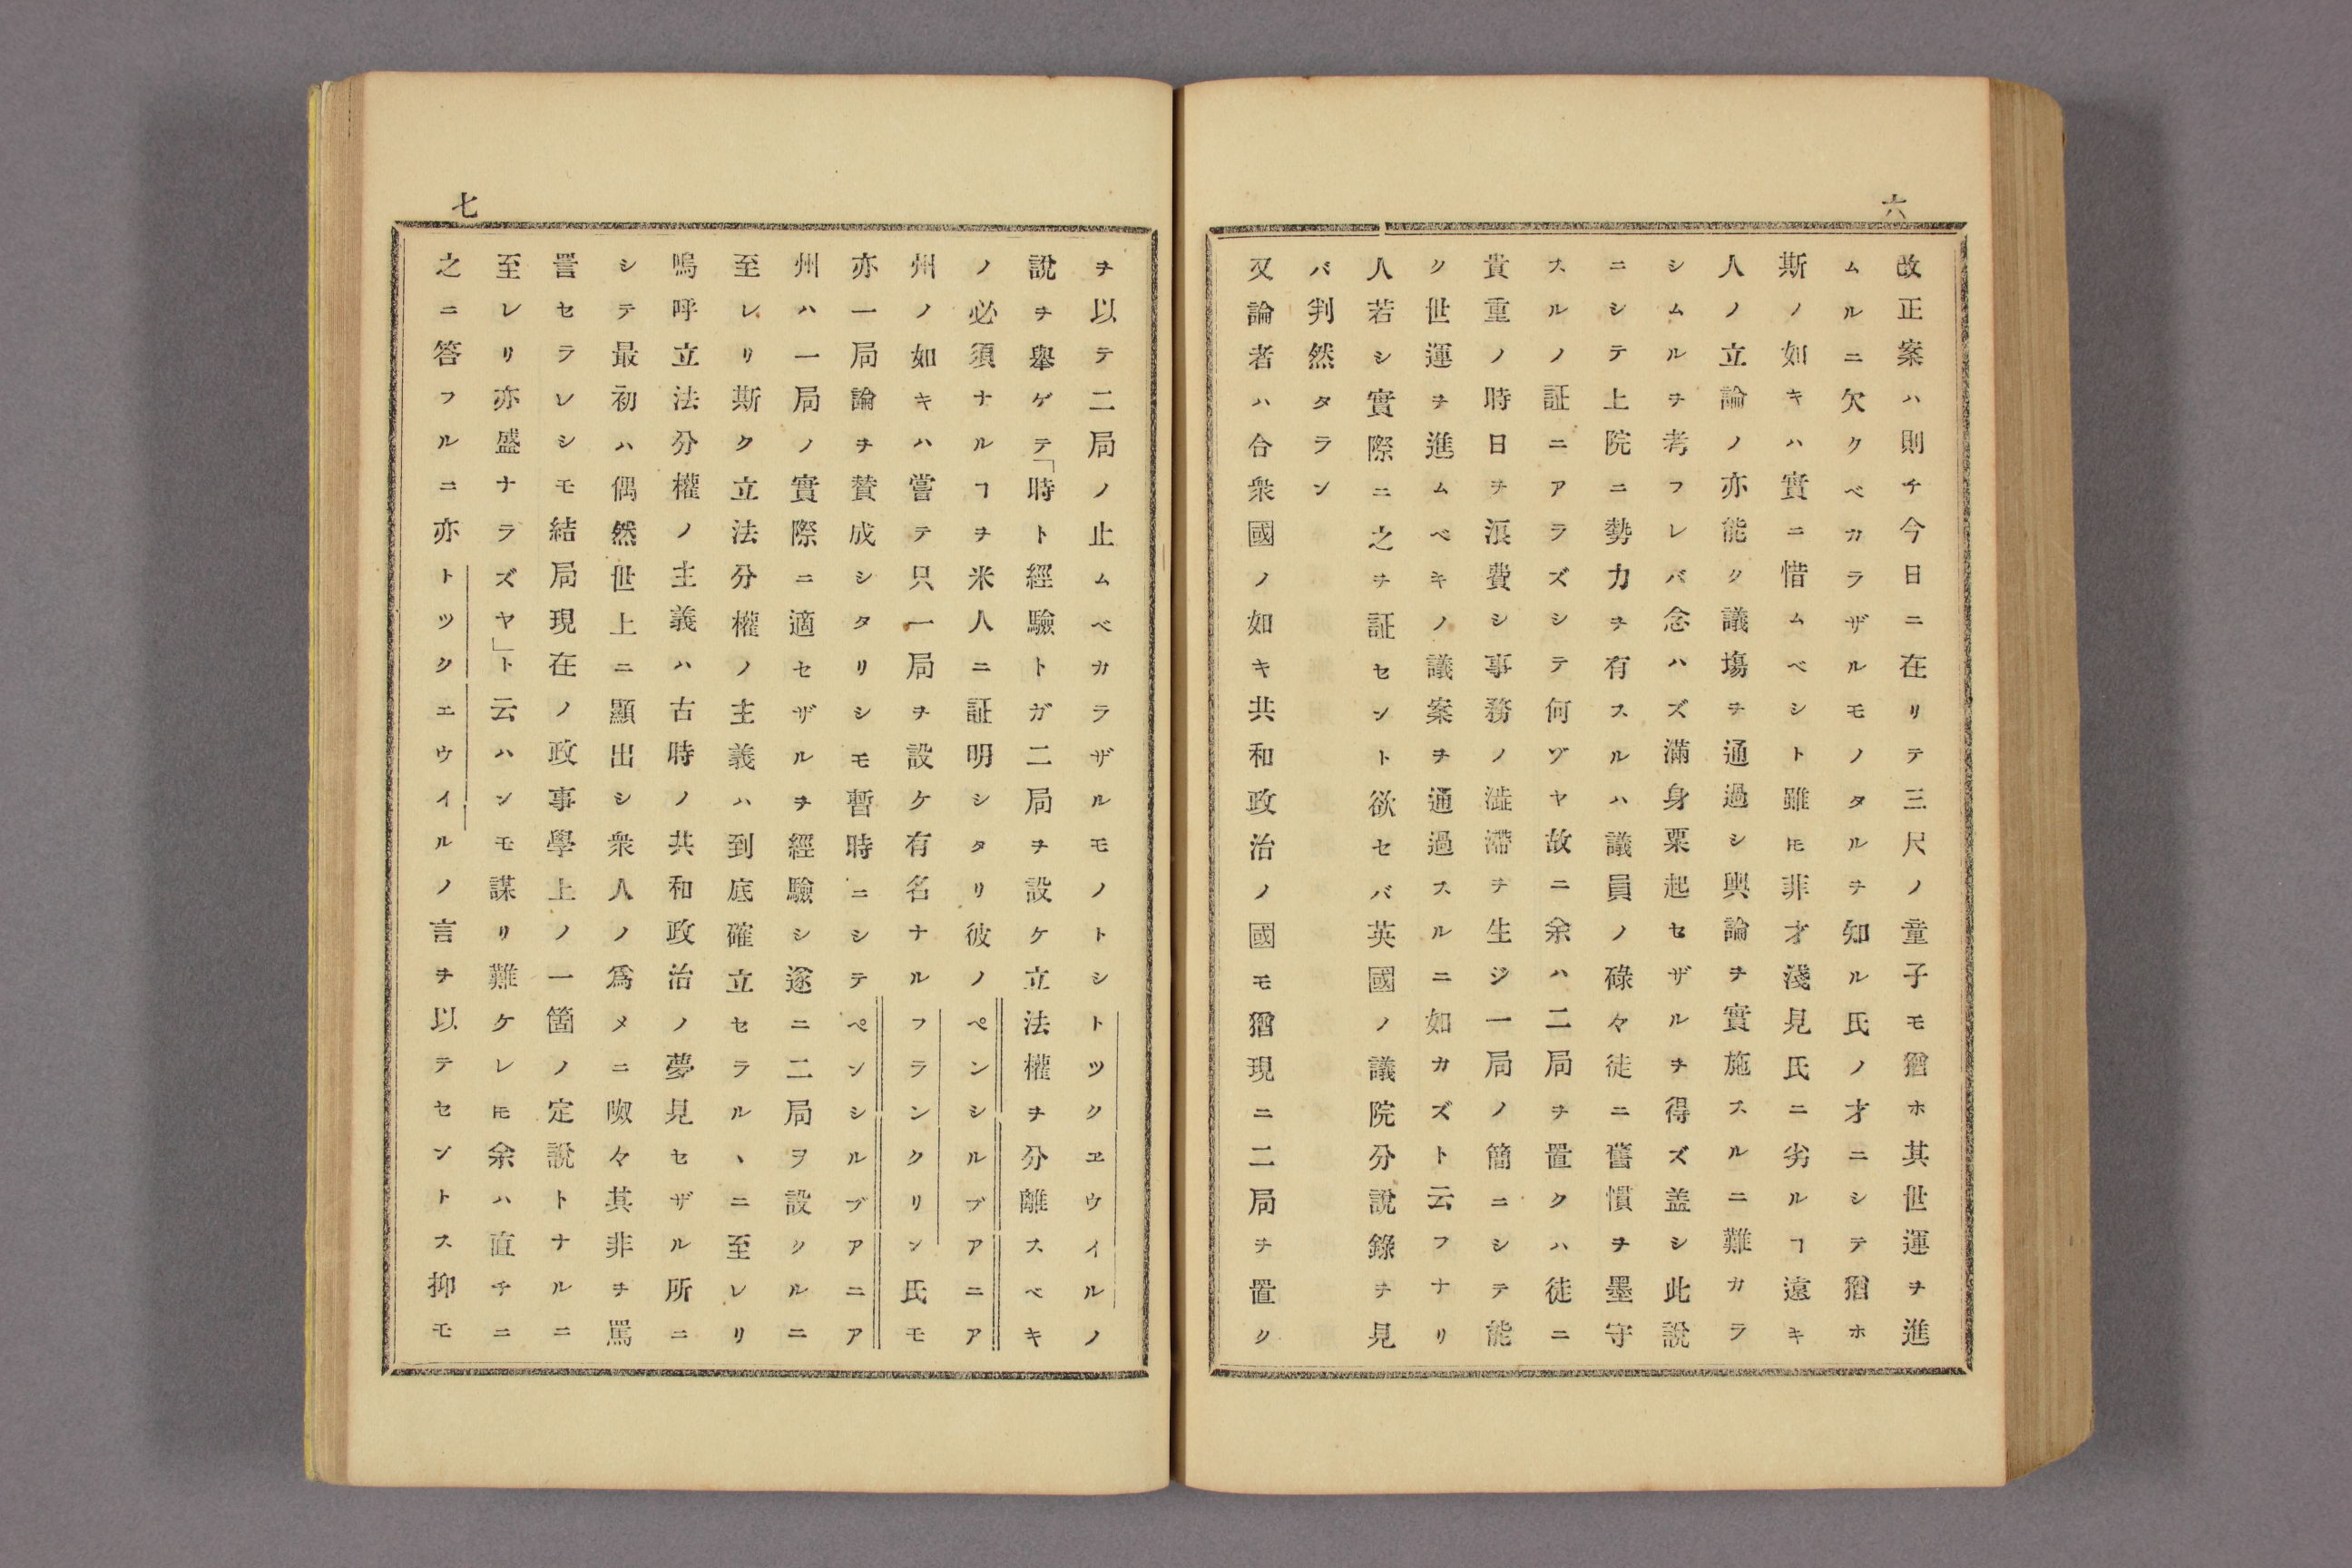 六
改正案ハ則チ今日ニ在リテ三尺ノ童子モ猶ホ其世運ヲ進
ムルニ欠クベカラザルモノタルヲ知ル氏ノ才ニシテ猶ホ
斯ノ如キハ實ニ惜ムベシト雖𪜈非才淺見氏ニ劣ルヿ遠キ
人ノ立論ノ亦能ク議塲ヲ通過シ輿論ヲ實施スルニ難カラ
シムルヲ考フレバ念ハズ滿身粟起セザルヲ得ズ盖シ此說
ニシテ上院ニ勢力ヲ有スルハ議員ノ碌々徒ニ舊慣ヲ墨守
スルノ証ニアラズシテ何ゾヤ故ニ余ハ二局ヲ置クハ徒ニ
貴重ノ時日ヲ浪費シ事務ノ澁滯ヲ生ジ一局ノ簡ニシテ能
ク世運ヲ進ムベキノ議案ヲ通過スルニ如カズト云フナリ
人若シ實際ニ之ヲ証セント欲セバ英國ノ議院分說錄ヲ見
バ判然タラン
又論者ハ合衆國ノ如キ共和政治ノ國モ猶現ニ二局ヲ置ク
七
ヲ以テ二局ノ止ムベカラザルモノトシトツクヱウイルノ
說ヲ舉ゲテ「時ト經驗トガ二局ヲ設ケ立法權ヲ分離スベキ
ノ必須ナルヿヲ米人ニ証明シタリ彼ノペンシルブアニア
州ノ如キハ嘗テ只一局ヲ設ケ有名ナルフランクリン氏モ
亦一局論ヲ賛成シタリシモ暫時ニシテペンシルブアニア
州ハ一局ノ實際ニ適セザルヲ經驗シ遂ニ二局ヲ設クルニ
至レリ斯ク立法分權ノ主義ハ到底確立セラルヽニ至レリ
嗚呼立法分權ノ主義ハ古時ノ共和政治ノ夢見セザル所ニ
シテ最初ハ偶然世上ニ顯出シ衆人ノ爲メニ呶々其非ヲ罵
詈セラレシモ結局現在ノ政事學上ノ一箇ノ定說トナルニ
至レリ亦盛ナラズヤ」ト云ハンモ謀リ難ケレ𪜈余ハ直チニ
之ニ答フルニ亦トツクエウイルノ言ヲ以テセントス抑モ